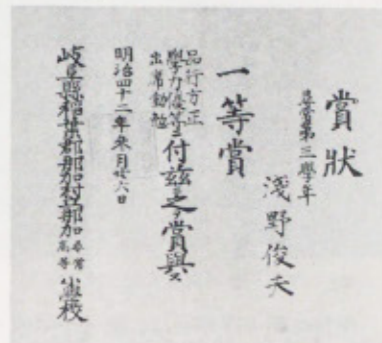 賞狀
尋常第三學年
淺野俊夫
一等賞
品行方正
學力優等
出席勤勉
ニ付茲ニ之ヲ賞與ス
明治四十二年參月廿六日
岐阜縣稻葉郡那加村立那加尋常高等小學校